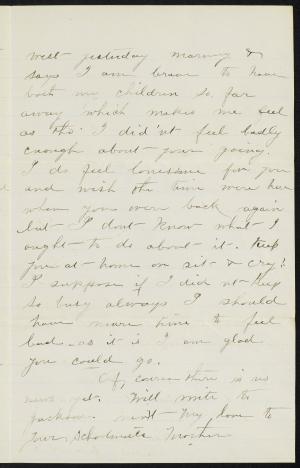 west yesterday morning &
says I am brave to have
both my children so far
away which makes me feel
as tho' I did'nt feel badly
enough about your going.
I do feel lonesome for you
and wish the time were here
when you were back again
but I dont know what I
ought to do about it. Keep
you at home or sit & cry?
I suppose if I did'nt keep
so busy always I should
have more time to feel
bad. as it is I am glad
you could go.
Of course there is no
news yet. Will write to
Jackson. Much
Your Mother